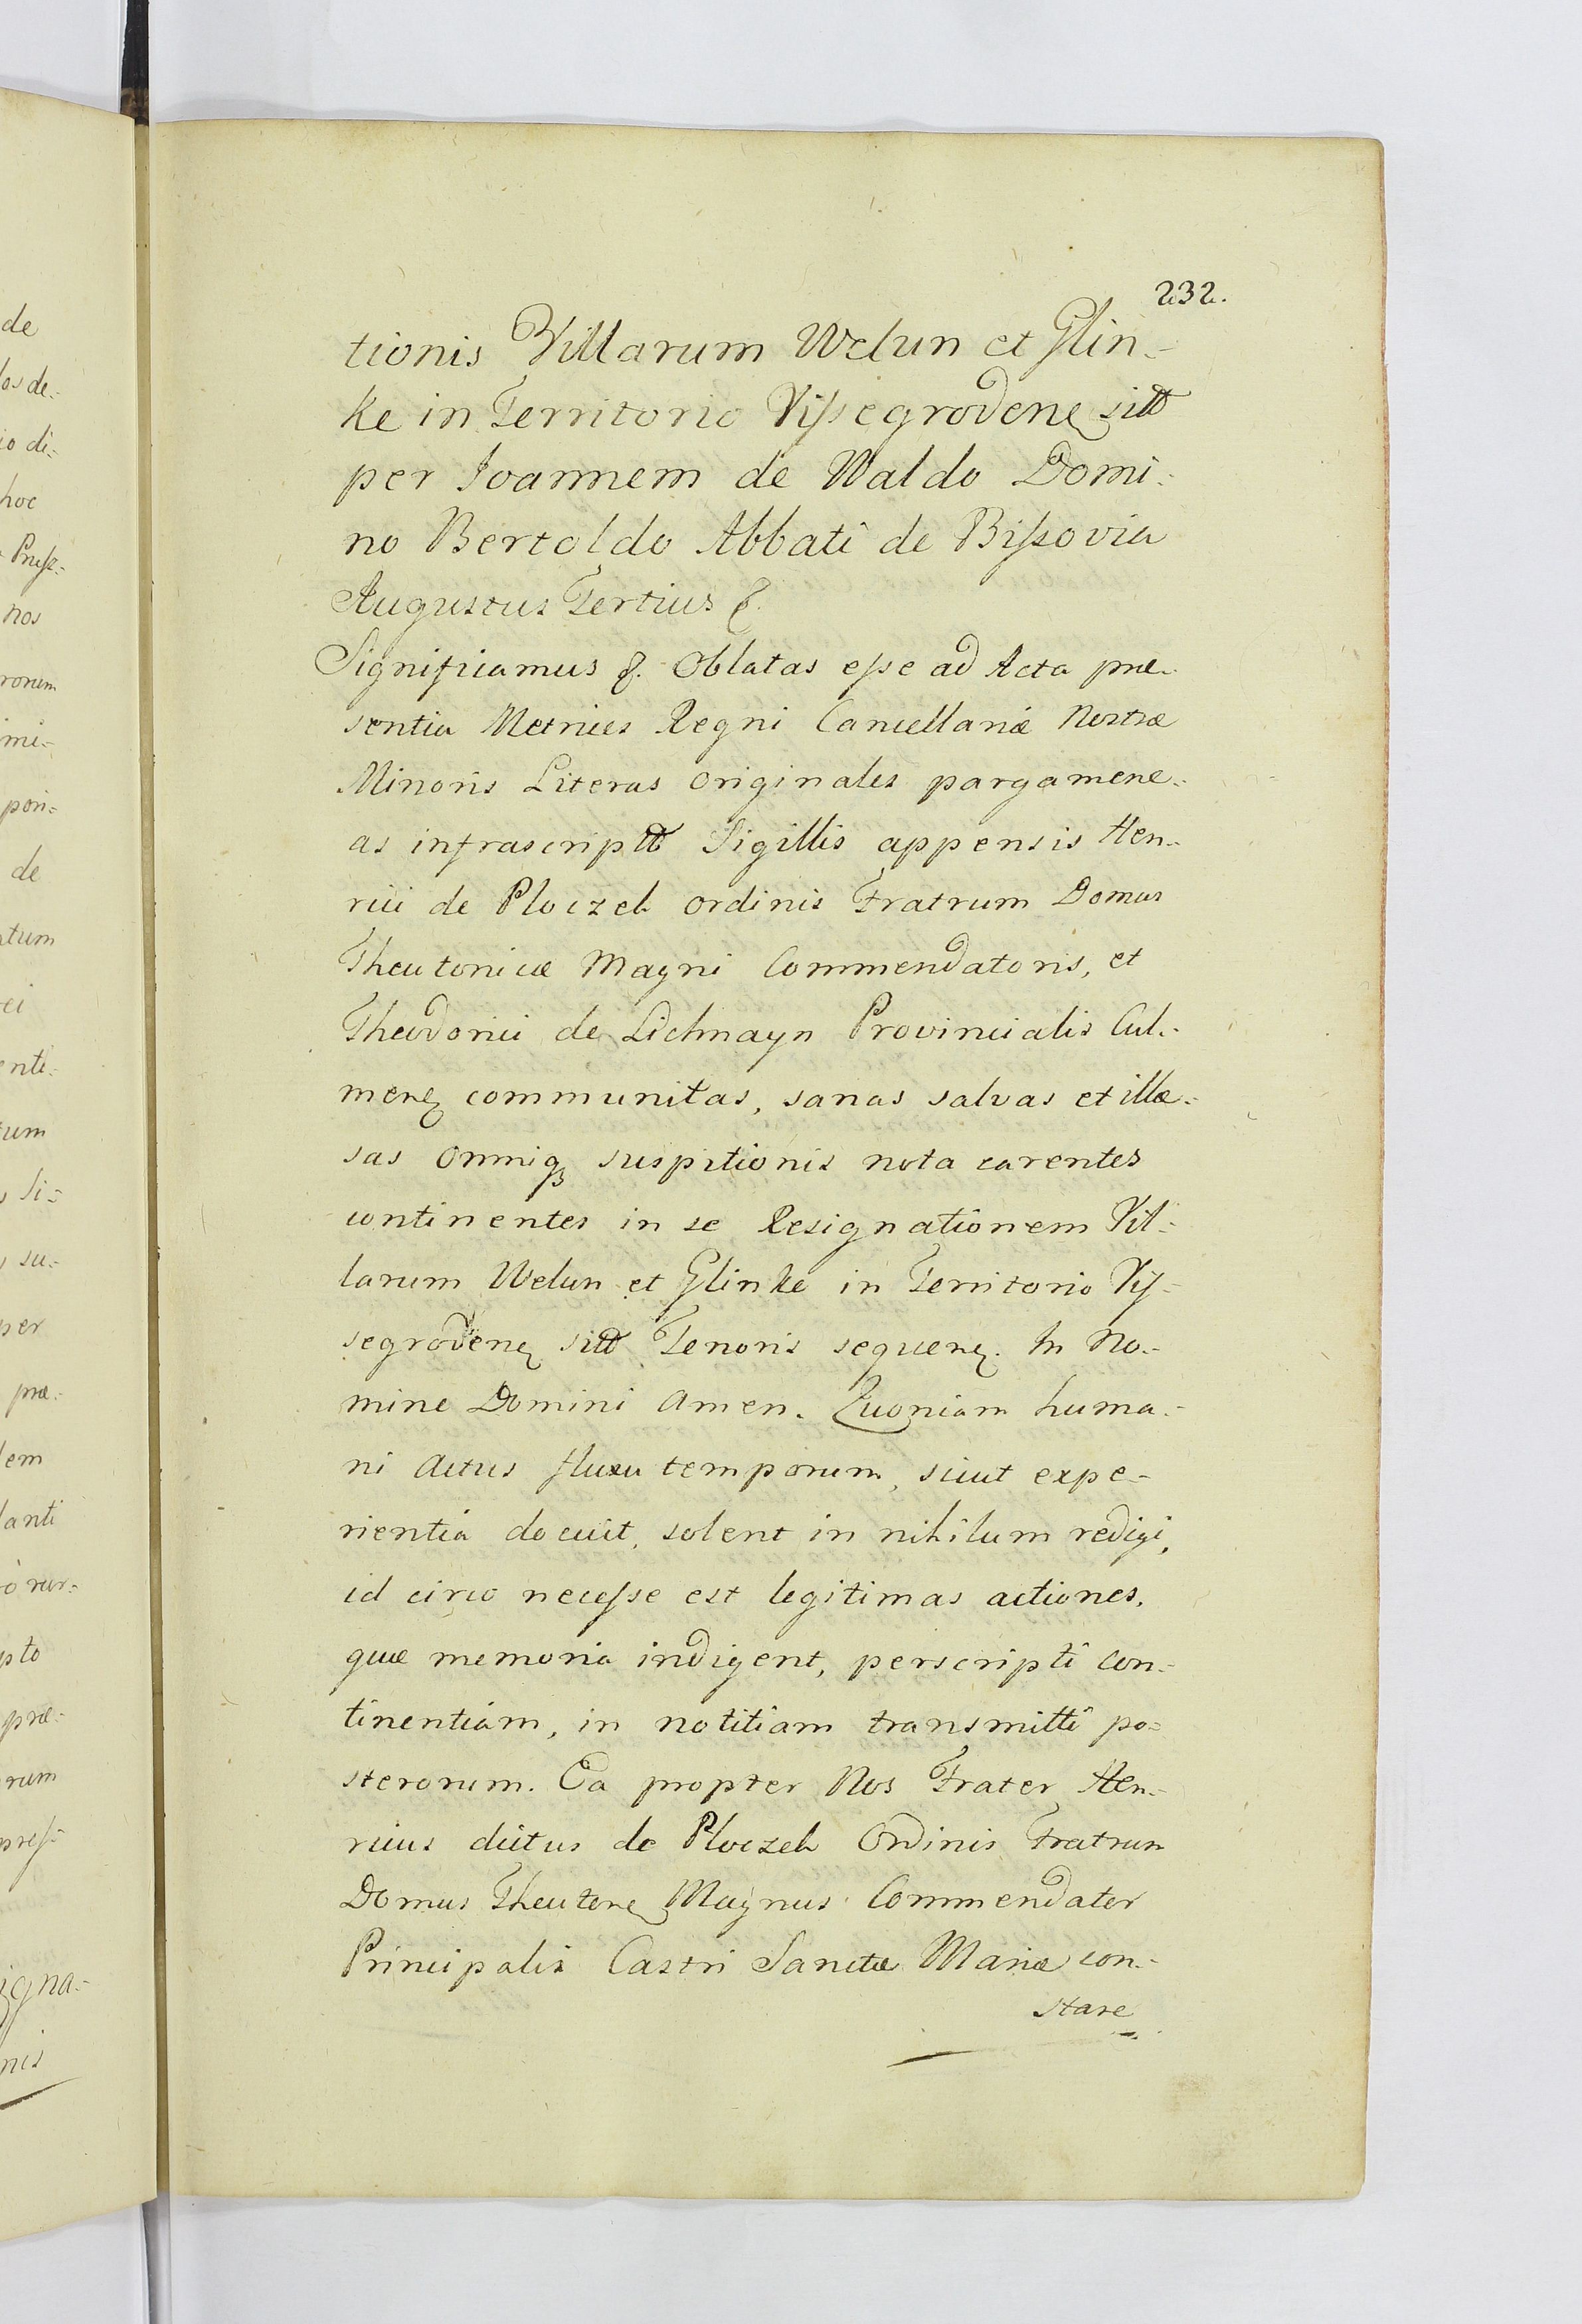 232.
tionis Villarum Welun et Glin-
ke in Territorio Vissegrodenę sitt
per Joannem de Waldo Domi-
no Bertoldo Abbati de Bissovia
Augustus Tertius &.
Significamus &. Oblatas esse ad Acta præ-
sentia Metrices Regni Cancellariæ Nostræ
Minoris Literas originales pargamene-
as infrascriptt Sigillis appensis Hen-
rici de Ploczch ordinis Fratrum Domus
Theutonicæ Magni Commendatoris, et
Theodorici de Lichnayn Provincialis Cul-
menę communitas, sanas salvas et illæ-
sas omniq suspitionis nota carentes
continentes in se Resignationem Vil-
larum Welun et Glinke in Territorio Vis-
segrodenę sitt Tenoris sequenę. In No-
mine Domini Amen. Quoniam huma-
ni actus fluxu temporum, sicut expe-
rientia docuit, solent in nihilum redigi,
id circo necesse est legitimas actiones,
quæ memoria indigent, perscripti con-
tinentiam, in notitiam transmitti po-
sterorum. Ea propter Nos Frater Hen-
ricus dictus de Ploczch Ordinis Fratrum
Domus Theutonę Magnus Commendator
Principalis Castri Sanctæ Mariæ con-
stare
de
los de-
io di-
hoc
nos
rorum
mi-
de
atum
enti-
tum
Si-
su-
per
præ-
lanti
præ-
rum
igna-
nis